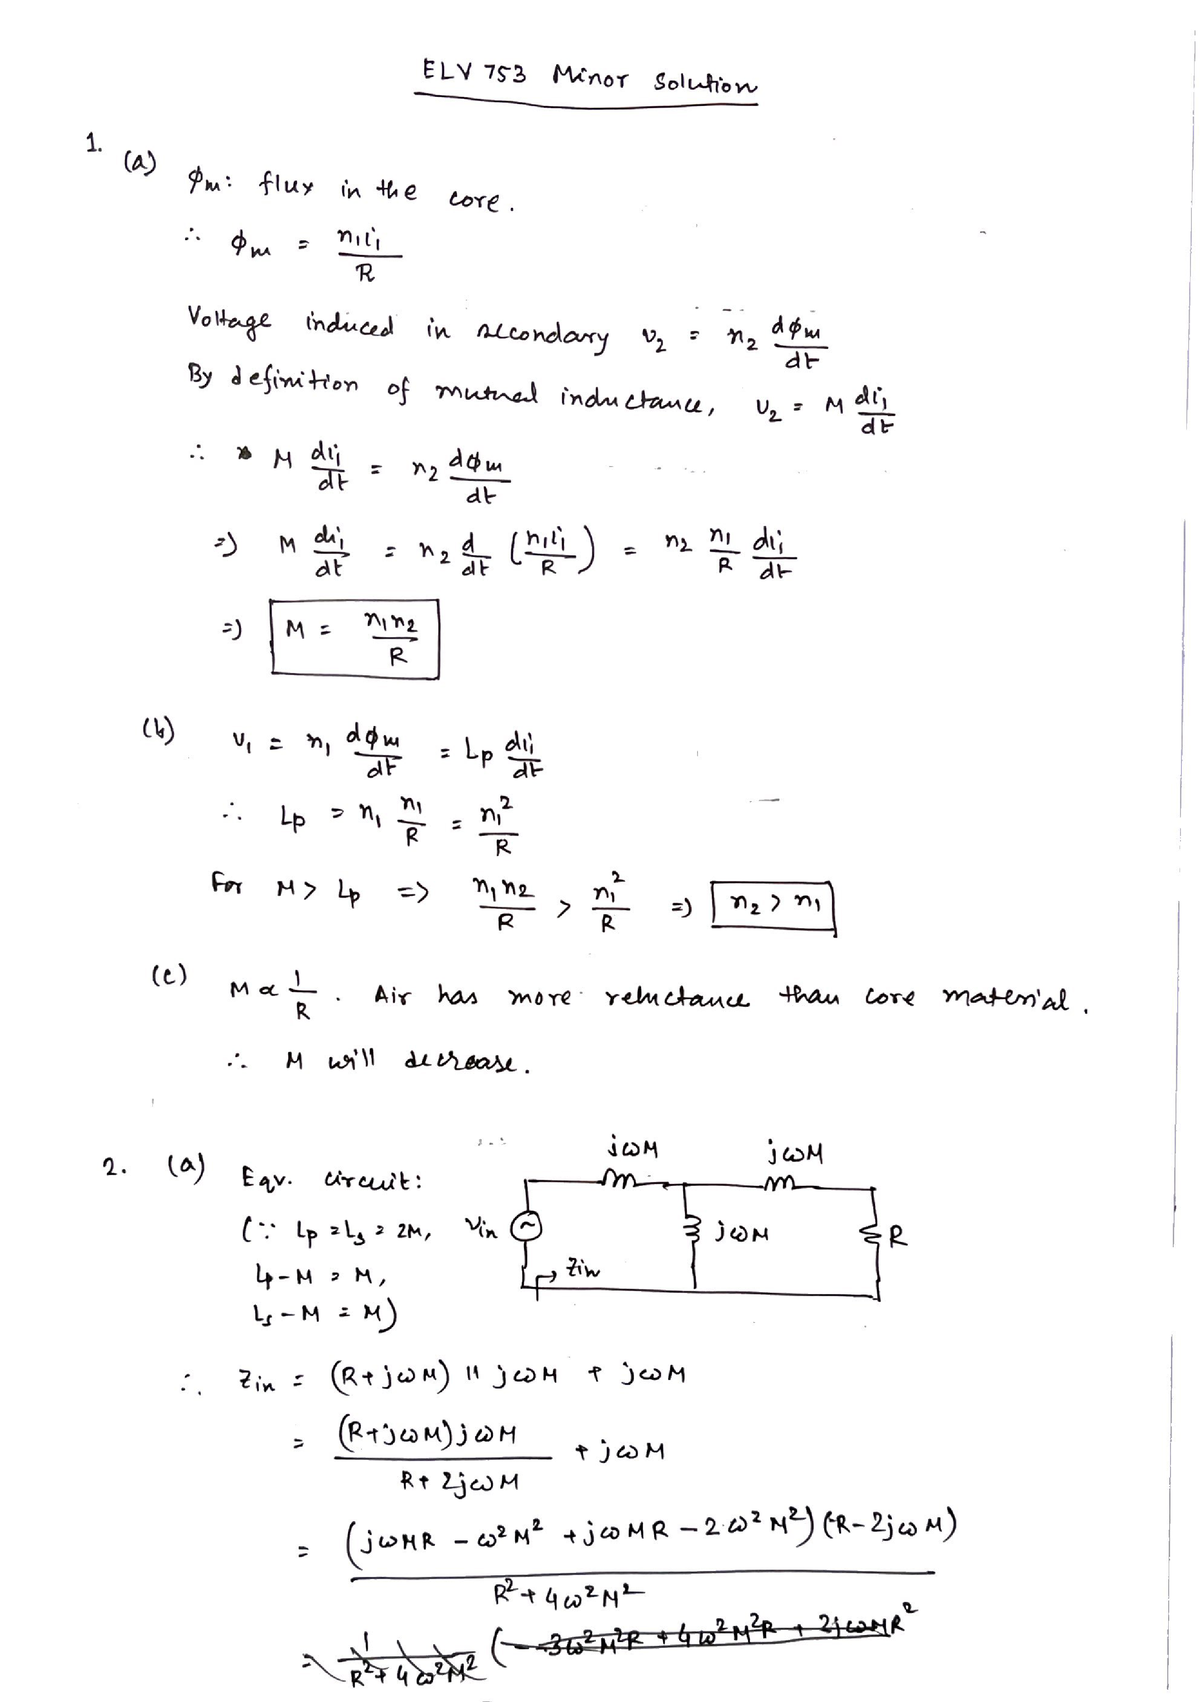 ELV 753 Minor Solution
1. (a) ϕm: flux in the core.
∴ ϕm = n₁i₁/R
Voltage induced in secondary v₂ = n₂ dϕm/dt
By definition of mutual inductance, v₂ = M di₁/dt
∴ M di₁/dt = n₂ dϕm/dt
=) M di₁/dt = n₂ d/dt (n₁i₁/R) = n₂ n₁/R di₁/dt
=) M = n₁n₂/R
(b) v₁ = n₁ dϕm/dt = Lp di₁/dt
∴ Lp = n₁ n₁/R = n₁²/R
For M > Lp => n₁n₂/R > n₁²/R =) n₂ > n₁
(c) M ∝ 1/R. Air has more reluctance than core material.
∴ M will decrease.
2. (a) Eqv. circuit:
jωM jωM
(∵ Lp = Ls = 2M, Vin jωM R
Lp-M = M, Zin
Ls-M = M)
∴ Zin = (R+jωM) || jωM + jωM
= (R+jωM)jωM / R+2jωM + jωM
= (jωMR - ω²M² + jωMR - 2ω²M²) (R-2jωM) / R²+4ω²M²
= 1/R²+4ω²M² (-3ω²M²R + 4ω²M²R + 2jωMR²